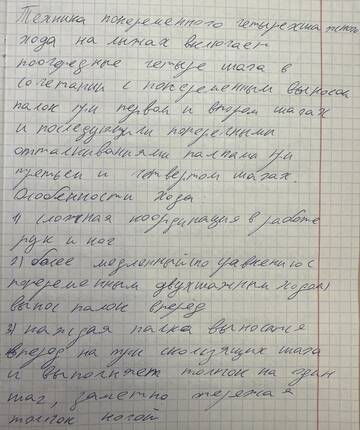 Техника попеременного четырехшажного
хода на лыжах включает
поочередные четыре шага в
сочетании с попеременным выносом
палок при первом и втором шагах
и последующими поперемными
отталкиваниями палками при
третьем и четвертом шагах.
Особенности хода:
1) сложная координация в работе
рук и ног
2) более медленный (по сравнению с
попеременным двухшажным ходом)
вынос палок вперед
3) каждая палка выносится
вперед на три скользящих шага
и выполняет толчок на один
шаг, заметно опережая
толчок ногой